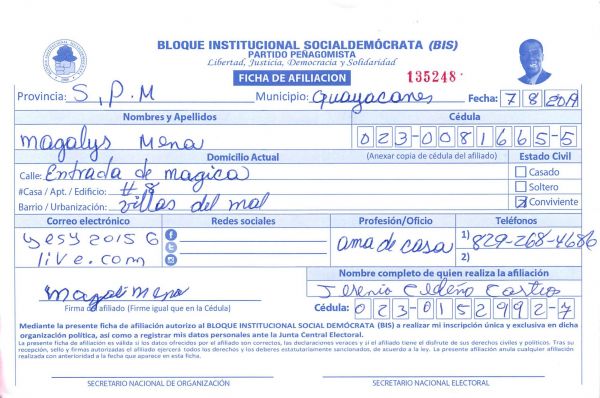 BLOQUE INSTITUCIONAL SOCIALDEMÓCRATA (BIS)
PARTIDO PEÑAGOMISTA
Libertad, Justicia, Democracia y Solidaridad
FICHA DE AFILIACION
135248
Provincia: S.P.M Municipio: Guayacanes Fecha: 7 8 2019
Nombres y Apellidos Cédula
Magalys Mena 023-0081665-5
Domicilio Actual (Anexar copia de cédula del afiliado) Estado Civil
Calle: Entrada de magica Casado
#Casa / Apt. / Edificio: #8 Soltero
Barrio / Urbanización: villas del mal Conviviente
Correo electrónico Redes sociales Profesión/Oficio Teléfonos
yesy 2015 @ ama de casa 1) 829-268-4686
live.com 2)
Nombre completo de quien realiza la afiliación
Magali Mena Cedeño Castro
Firma del afiliado (Firme igual que en la Cédula) Cédula: 023-0152992-7
Mediante la presente ficha de afiliación autorizo al BLOQUE INSTITUCIONAL SOCIAL DEMÓCRATA (BIS) a realizar mi inscripción única y exclusiva en dicha
organización política, así como a registrar mis datos personales ante la Junta Central Electoral.
La presente ficha de afiliación es válida si los datos ofrecidos por el afiliado son correctos, las declaraciones veraces y si el afiliado tiene el disfrute de sus derechos civiles y políticos. Tras su
recepción, sello y firmas autorizadas el afiliado ejercerá todos los derechos y los deberes estatutariamente sancionados, de acuerdo a la ley. La presente afiliación anula cualquier afiliación
realizada con anterioridad a la fecha que aparece en esta ficha.
SECRETARIO NACIONAL DE ORGANIZACIÓN SECRETARIO NACIONAL ELECTORAL